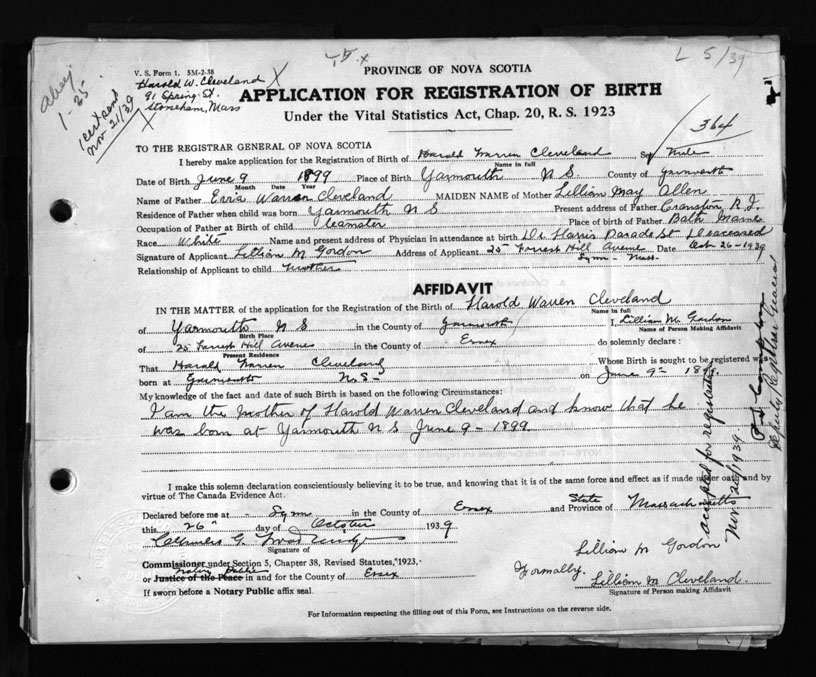 L 5/39
V. S. Form 1. 5M-2-38
PROVINCE OF NOVA SCOTIA
Harold W. Cleveland
91 Spring St.
Stoneham, Mass
1-25
1 cert sent
Nov 21/39
APPLICATION FOR REGISTRATION OF BIRTH
Under the Vital Statistics Act, Chap. 20, R. S. 1923
364
TO THE REGISTRAR GENERAL OF NOVA SCOTIA
I hereby make application for the Registration of Birth of Harold Warren Cleveland Sex Male
Name in full
Date of Birth June 9 1899 Place of Birth Yarmouth N S County of Yarmouth
Month Date Year
Name of Father Warren Cleveland MAIDEN NAME of Mother Lillian May Allen
Residence of Father when child was born Yarmouth N S Present address of Father Cranston, R. I.
Occupation of Father at Birth of child teamster Place of birth of Father Bath Maine
Race White Name and present address of Physician in attendance at birth Dr Harris Parade St Deaceased
Signature of Applicant Lillian M Gordon Address of Applicant 25 Forrest Hill Avenue Date Oct 26-1939
Lynn - Mass.
Relationship of Applicant to child Mother
AFFIDAVIT
IN THE MATTER of the application for the Registration of the Birth of Harold Warren Cleveland
Name in full
of Yarmouth N S in the County of Yarmouth I, Lillian M. Gordon
Birth Place Name of Person Making Affidavit
of 25 Forrest Hill Avenue in the County of Essex do solemnly declare :
Present Residence
That Harold Warren Cleveland Whose Birth is sought to be registered was
born at Yarmouth N. S on June 9 1899.
My knowledge of the fact and date of such Birth is based on the following Circumstances:
I am the mother of Harold Warren Cleveland and know that he
was born at Yarmouth N S June 9 - 1899
I make this solemn declaration conscientiously believing it to be true, and knowing that it is of the same force and effect as if made under oath and by
virtue of The Canada Evidence Act.
Declared before me at Lynn in the County of Essex and State Province of Massachusetts
this 26 day of October 1939
Charles G.
Signature of
Lillian M Gordon
Commissioner under Section 5, Chapter 38, Revised Statutes, 1923,
Notary Public
or Justice of the Peace in and for the County of Essex
Formally. Lillian M Cleveland.
Signature of Person making Affidavit
If sworn before a Notary Public affix seal.
For Information respecting the filling out of this Form, see Instructions on the reverse side.
accepted for registration
Nov 20/1939
Deputy Registrar General